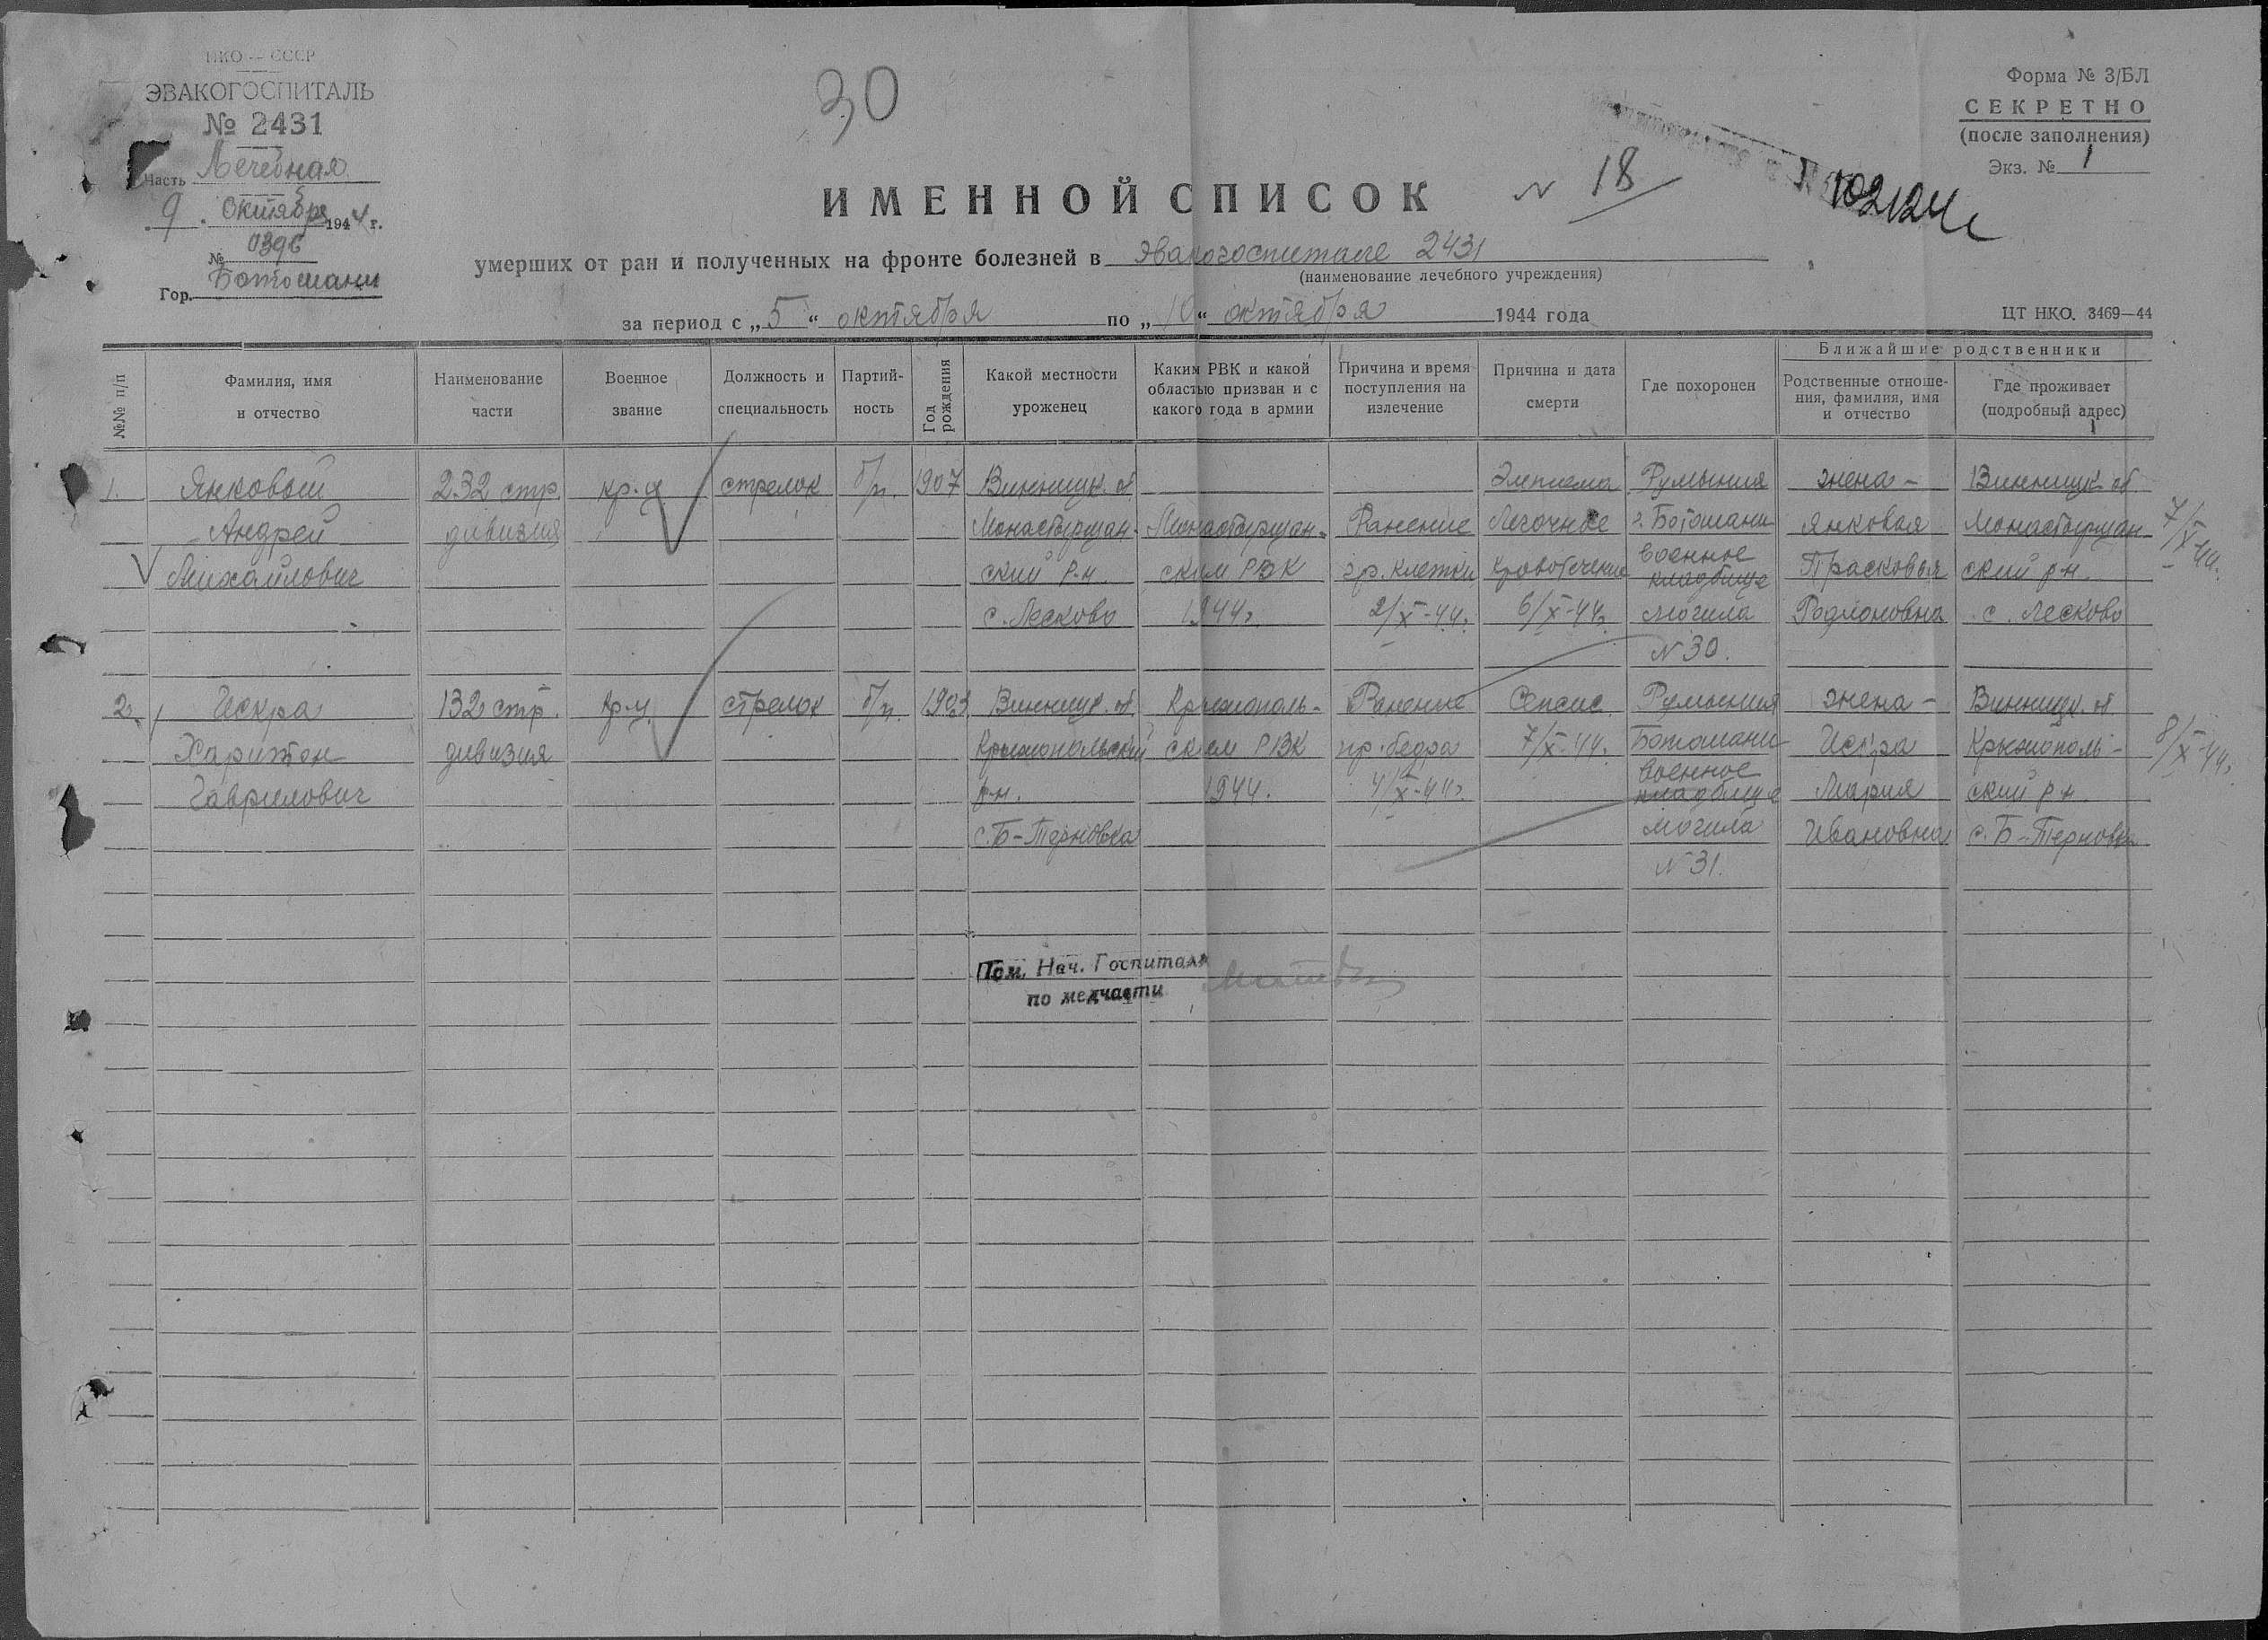 НКО — СССР
ЭВАКОГОСПИТАЛЬ
№ 2431
Часть Лечебная
9 . октября 1944 г.
№ 0396
Гор. Ботошани
30
Форма № 3/БЛ
СЕКРЕТНО
(после заполнения)
Экз. № 1
ИМЕННОЙ СПИСОК № 18
102124с
умерших от ран и полученных на фронте болезней в эвакогоспитале 2431
(наименование лечебного учреждения)
за период с „ 5 “ октября по „ 10 “ октября 1944 года
ЦТ НКО. 3469—44
№№ п/п
Фамилия, имя
и отчество
Наименование
части
Военное
звание
Должность и
специальность
Партий-
ность
Год
рождения
Какой местности
уроженец
Каким РВК и какой
областью призван и с
какого года в армии
Причина и время
поступления на
излечение
Причина и дата
смерти
Где похоронен
Ближайшие родственники
Родственные отноше-
ния, фамилия, имя
и отчество
Где проживает
(подробный адрес)
1. Янковый 232 стр. кр-ц стрелок б/п. 1907 Винницк. об Эмпиема Румыния жена – Винницк. об.
Андрей дивизия Монастырщан- Монастырщан- Ранение Легочное г. Ботошани Янковая Монастырщан- 7/X-44г.
Михайлович ский р-н. ским РВК гр. клетки кровотечение военное кладбище Прасковья ский р-н.
с. Лесково 1944г. 2/X-44г. 6/X-44г. могила Родионовна с. Лесково
№ 30.
2. Искра 132 стр. кр-ц. стрелок б/п. 1903 Винницк. об. Крыжополь- Ранение Сепсис Румыния жена – Винницк. об.
Харитон дивизия Крыжопольский ским РВК пр. бедра 7/X-44г. Ботошани Искра Крыжополь- 8/X-44г.
Гаврилович р-н. 1944. 4/X-44г. военное кладбище Мария ский р-н.
с. Б-Терновка могила Ивановна с. Б-Терновка
№ 31.
Пом. Нач. Госпиталя
по медчасти